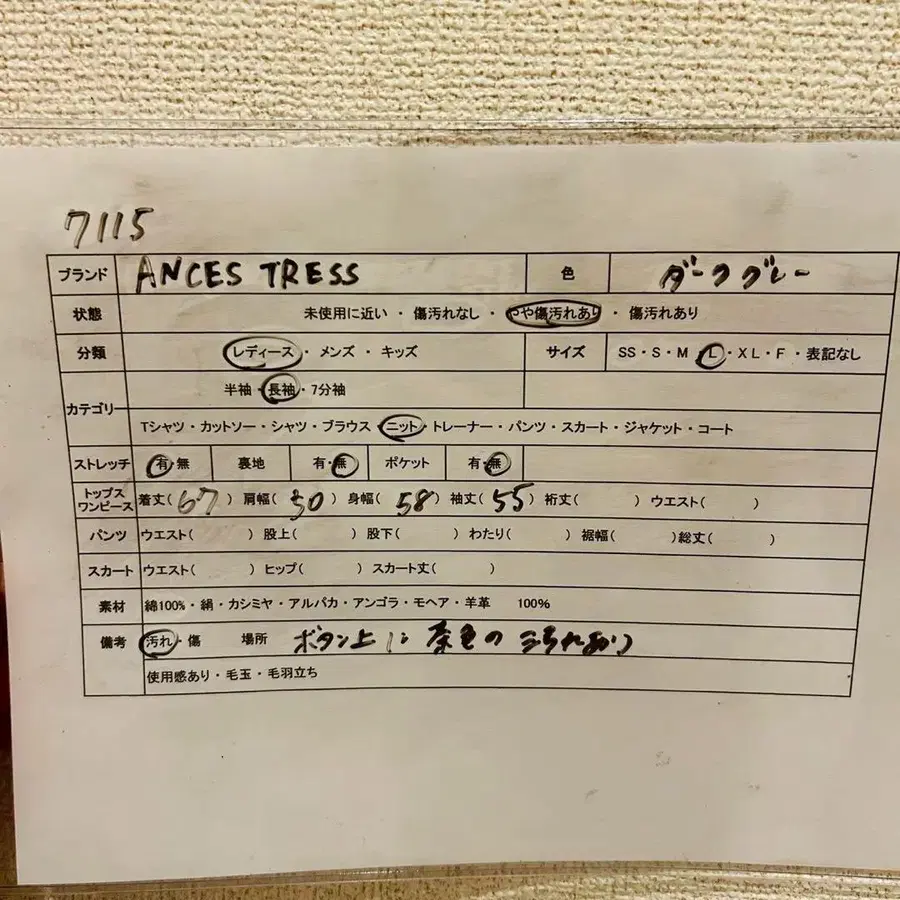 7115
ブランド ANCES TRESS 色 ダークグレー
状態 未使用に近い・傷汚れなし・やや傷汚れあり・傷汚れあり
分類 レディース・メンズ・キッズ サイズ SS・S・M・L・XL・F・表記なし
半袖・長袖・7分袖
カテゴリー
Tシャツ・カットソー・シャツ・ブラウス・ニット・トレーナー・パンツ・スカート・ジャケット・コート
ストレッチ 有・無 裏地 有・無 ポケット 有・無
トップス
ワンピース 着丈(67) 肩幅(50) 身幅(58) 袖丈(55) 裄丈( ) ウエスト( )
パンツ ウエスト( ) 股上( ) 股下( ) わたり( ) 裾幅( )総丈( )
スカート ウエスト( ) ヒップ( ) スカート丈( )
素材 綿100%・絹・カシミヤ・アルパカ・アンゴラ・モヘア・羊革 100%
備考 汚れ・傷 場所 ボタン上に茶色の汚れあり
使用感あり・毛玉・毛羽立ち